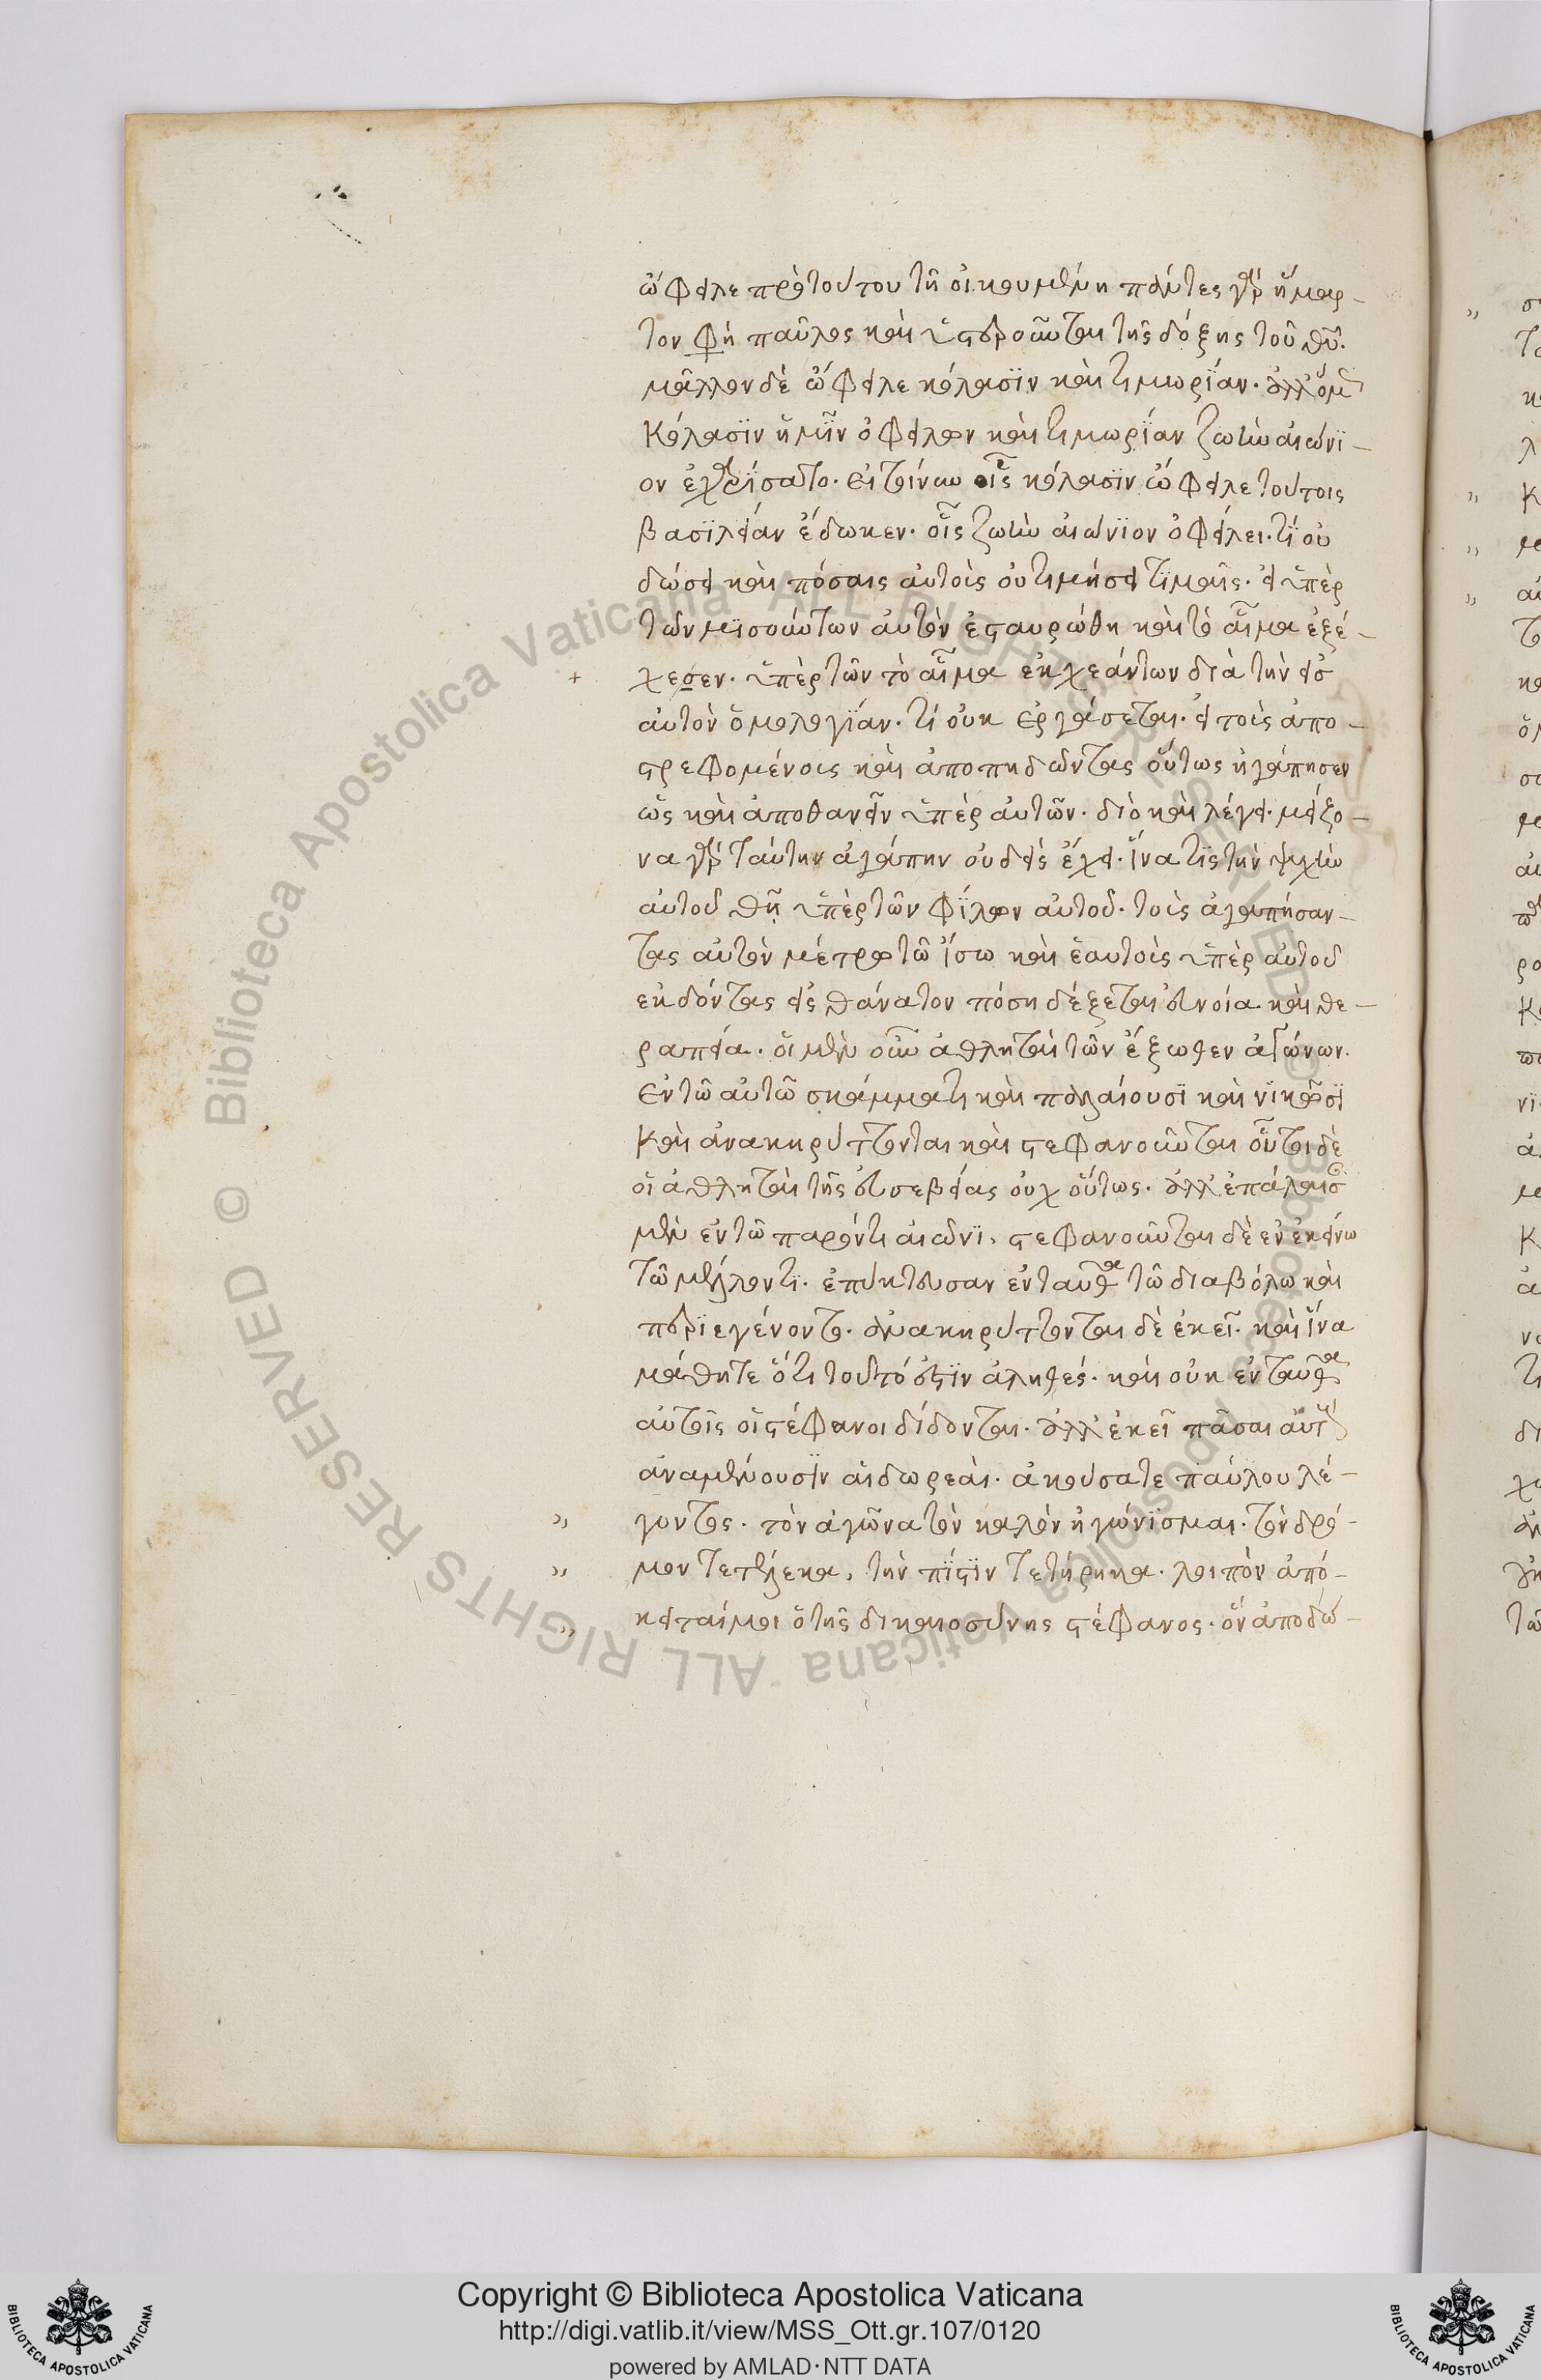 ὤφειλε πρὸ τούτου τῆ οἰκουμένη πάντες γὰρ ἥμαρ-
τον φη παῦλος καὶ ὑστεροῦνται τῆς δόξης τοῦ θῦ.
μᾶλλον δὲ ὤφειλε κόλασϊν καὶ τιμωρΐαν. ἀλλ' ὅμ
Κόλασϊν ἡμῖν ὀφείλων καὶ τιμωρΐαν ζωὴν αἰώνϊ-
ον ἐχαρΐσατο. εἰ τοίνυν οἷς κόλασϊν ὤφειλε τούτοις
βασϊλείαν ἔδωκεν. οἷς ζωὴν αἰώνϊον ὀφείλει. τί οὐ
δώσει καὶ πόσαις αὐτοὺς οὐ τιμήσει τϊμαῖς. εἰ ὑπὲρ
τῶν μϊσούντων αὐτὸν ἐσταυρώθη καὶ τὸ αἷμα ἐξέ-
χεσεν. ὑπὲρ τῶν τὸ αἷμα ἐκχεάντων διὰ τὴν εἰσ
αὐτὸν ὁμολογΐαν. τί οὐκ ἐργάσεται. εἰ τοὺς ἀπο-
στρεφομένους καὶ ἀποπηδῶντας οὕτως ἠγάπησεν
ὡς καὶ ἀποθανεῖν ὑπὲρ αὐτῶν. διὸ καὶ λέγει. μείζο-
να γὰρ ταύτην ἀγάπην οὐδεὶς ἔχει. ἵνα τϊς τὴν ψυχὴν
αὐτοῦ θῆ ὑπὲρ τῶν φΐλων αὐτοῦ. τοὺς ἀγαπήσαν-
τας αὐτὸν μέτρω τῶ ἴσω καὶ ἑαυτοὺς ὑπὲρ αὐτοῦ
ἐκδόντας εἰς θάνατον πόση δέξεται εὐνοία καὶ θε-
ραπεία. οἱ μὲν οὖν ἀθληταὶ τῶν ἔξωθεν ἀγώνων.
ἐν τῶ αὐτῶ σκάμματι καὶ παλαίουσϊ καὶ νϊκῶσϊ
Καὶ ἀνακηρύττονται καὶ στεφανοῦνται οὗτοι δὲ
οἱ ἀθληταὶ τῆς εὐσεβείας οὐχ οὕτως. ἀλλ' ἐπάλαισ
μὲν ἐν τῶ παρόντι αἰῶνϊ, στεφανοῦνται δὲ ἐν ἐκείνω
τῶ μέλλοντϊ. ἐπύκτευσαν ἐνταῦθα τῶ διαβόλω καὶ
περϊεγένοντο. ἀνακηρύττονται δὲ ἐκεῖ. καὶ ἵνα
μάθητε ὅτι τοῦτό ἐστϊν ἀληθές. καὶ οὐκ ἐνταῦθα
αὐτοῖς οἱ στέφανοι δίδονται. ἀλλ' ἐκεῖ πᾶσαι αὐτ
ἀναμένουσϊν αἱ δωρεαὶ. ἀκούσατε παύλου λέ-
γοντος. τὸν ἀγῶνα τὸν καλὸν ἠγώνϊσμαι. τὸν δρό-
μον τετέλεκα, τὴν πΐστϊν τετήρηκα. λοιπὸν ἀπό-
κειταί μοι ὁ τῆς δικαιοσύνης στέφανος. ὃν ἀποδώ-
Copyright © Biblioteca Apostolica Vaticana
http://digi.vatlib.it/view/MSS_Ott.gr.107/0120
powered by AMLAD·NTT DATA
BIBLIOTECA APOSTOLICA VATICANA
BIBLIOTECA APOSTOLICA VATICANA
Biblioteca Apostolica Vaticana ALL RIGHTS RESERVED © Biblioteca Apostolica Vaticana ALL RIGHTS RESERVED ©